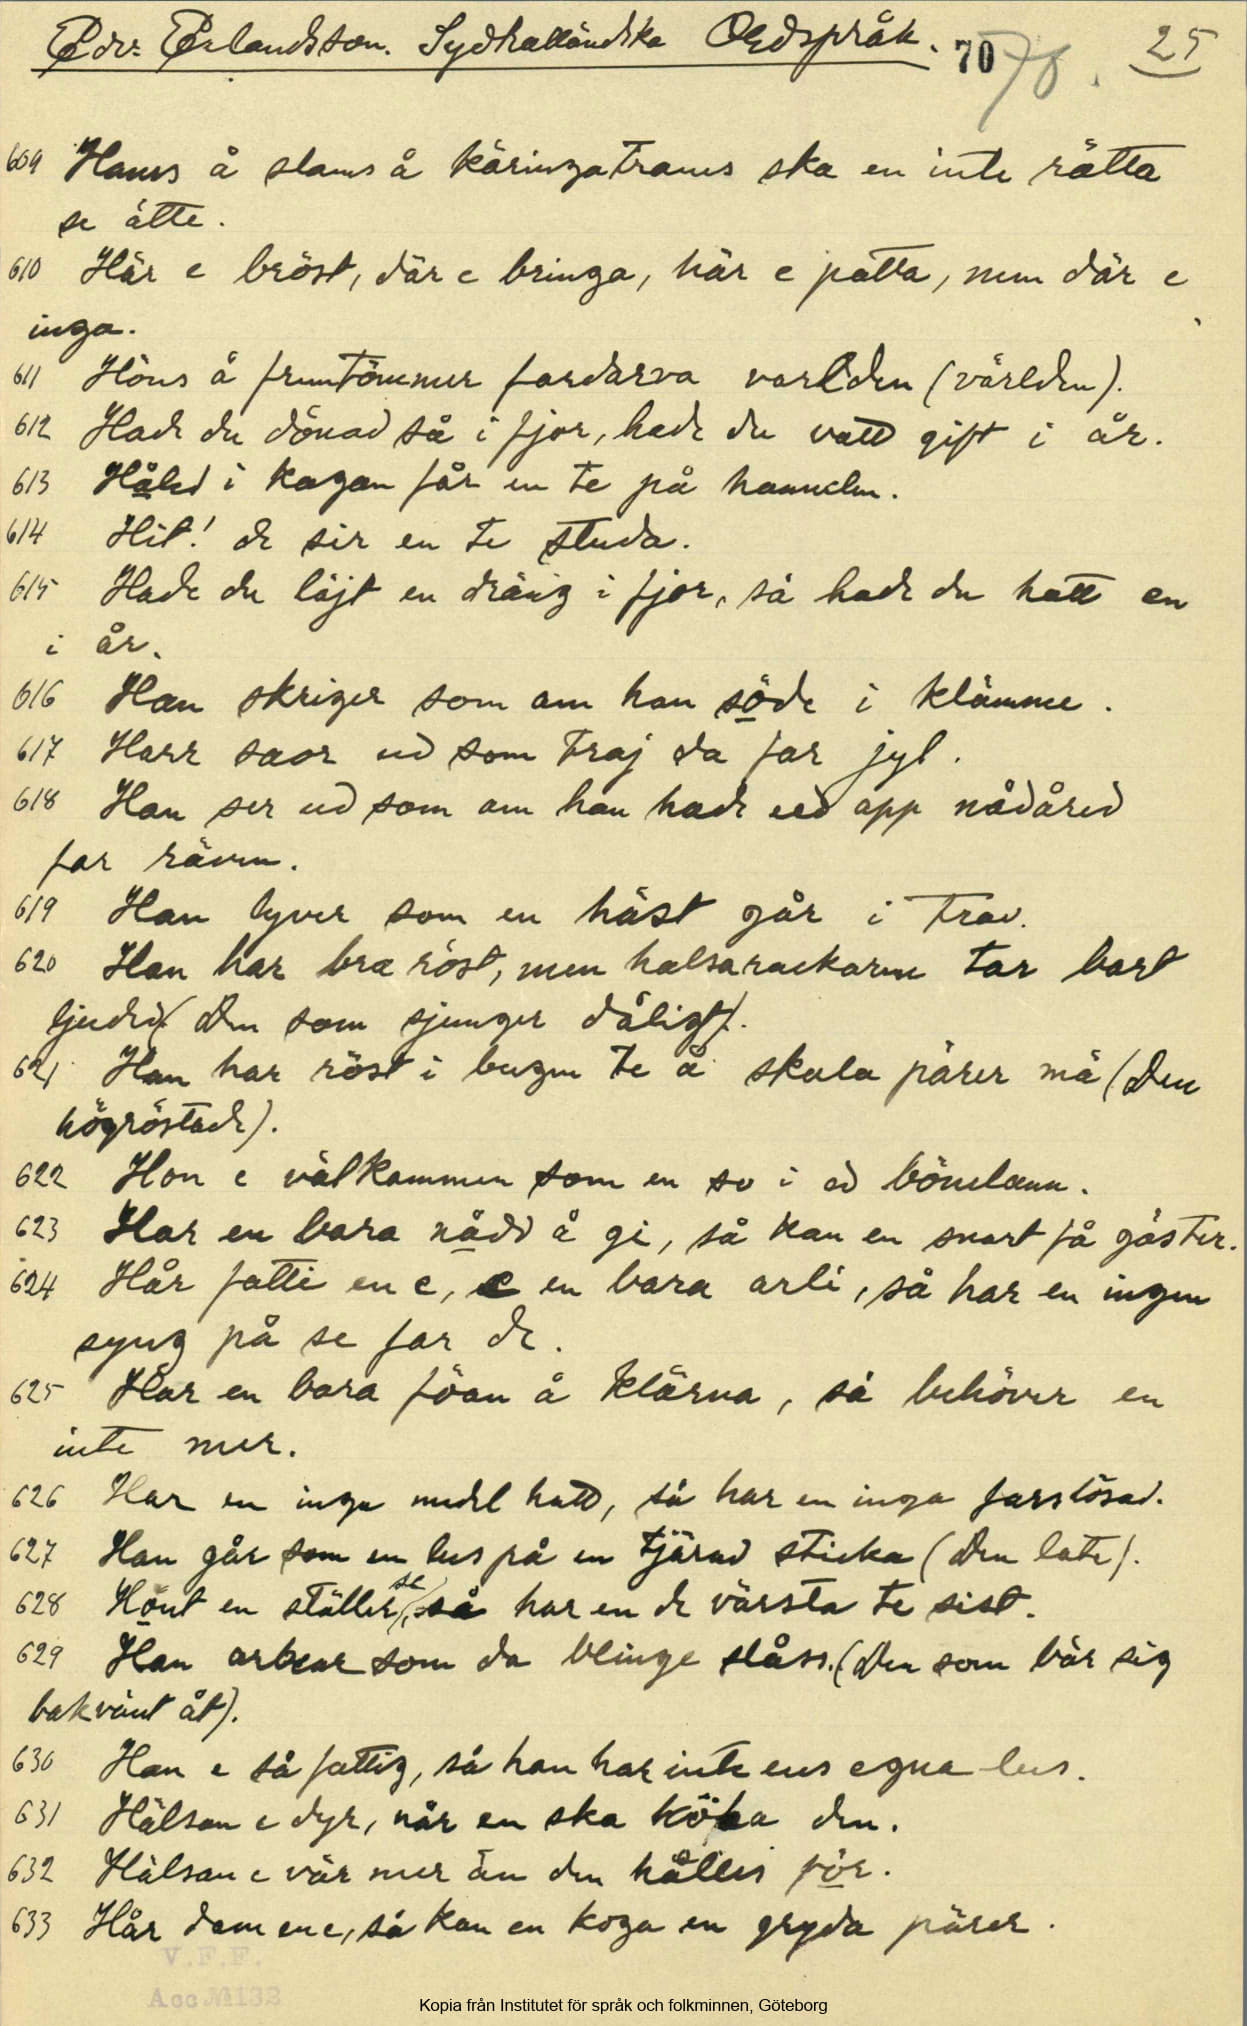 Edv. Erlandsson. Sydhalländska Ordspråk. 70 70. 25
609 Hams å slams å käringatrams ska en inte rätta
se åtte.
610 Här e bröst, där e bringa, här e patta, men där e
inga.
611 Höns å fruntömmer fardarva varlden (världen).
612 Hade du dönad så i fjor, hade du vatt gift i år.
613 Håled i kagan får en te på hannelen.
614 Hit! de sir en te studa.
615 Hade du löjt en dräng i fjor, så hade du hatt en
i år.
616 Han skriger som am han söde i klämme.
617 Harr saor ud som traj da far jyl.
618 Han ser ud som am han hade ed app nådåred
far räven.
619 Han lyver som en häst går i trav.
620 Han har bra röst, men halsarackarne tar bart
ljuded (Den som sjunger dåligt).
621 Han har röst i bugen te å skala pärer mä (Den
högröstade).
622 Hon e välkammen som en so i ed bönelann.
623 Har en bara nådd å ge, så kan en snart få gäster.
624 Hår fatti en e, e en bara arli, så har en ingen
syng på se far de.
625 Har en bara föan å klärna, så behöver en
inte mer.
626 Har en inga medel hatt, så har en inga farslösad.
627 Han går som en lus på en tjärad sticka (Den late).
628 Hont en ställer se, så har en de värsta te sist.
629 Han arbear som da blinge slåss. (Den som bär sig
bakvänt åt).
630 Han e så fattig, så han har inte ens egna lus.
631 Hälsan e dyr, når en ska köba den.
632 Hälsan e vär mer än den hålles för.
633 Hår dam en e, så kan en koga en gryda pärer.
V.F.F.
Acc № 132
Kopia från Institutet för språk och folkminnen, Göteborg